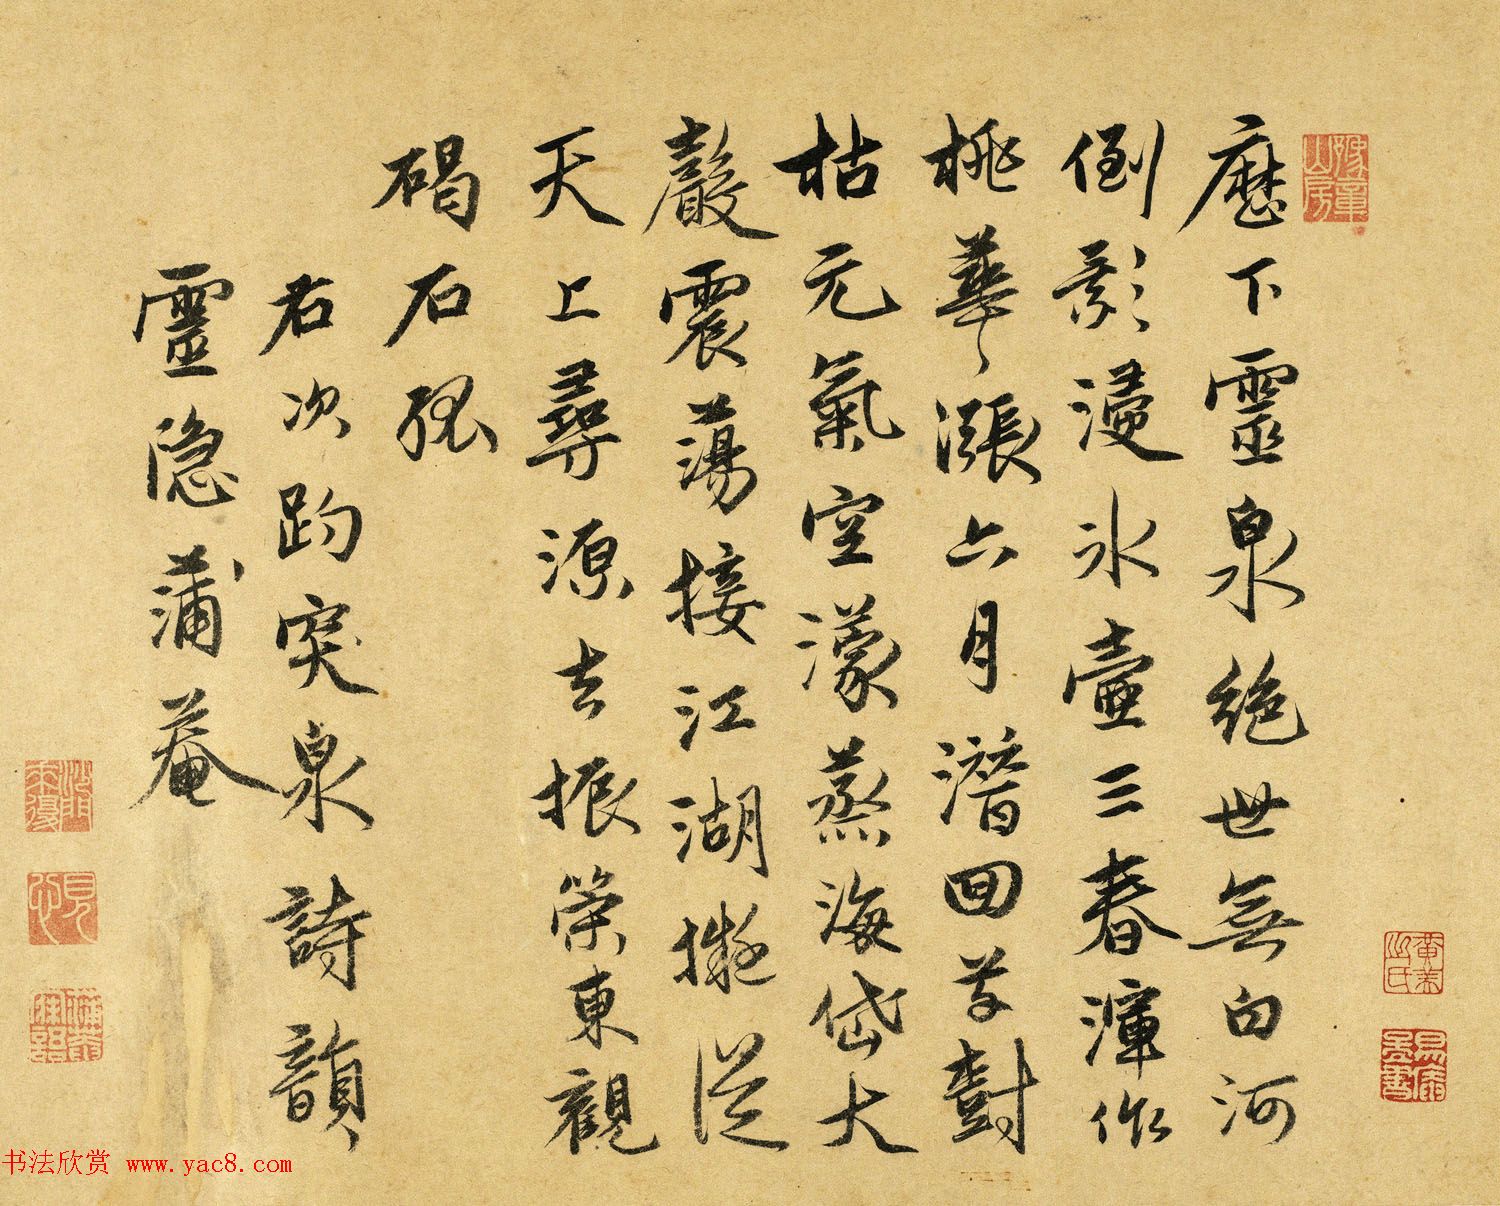 歷下靈泉絶世無白河
倒影浸氷壺三春渾作
桃華漲六月潛回草對
枯元氣空濛蒸海岱大
聲震蕩接江湖擬從
天上尋源去振策東觀
碣石孤
右次趵突泉詩韻
靈隐蒲菴
書法欣赏 www.yac8.com